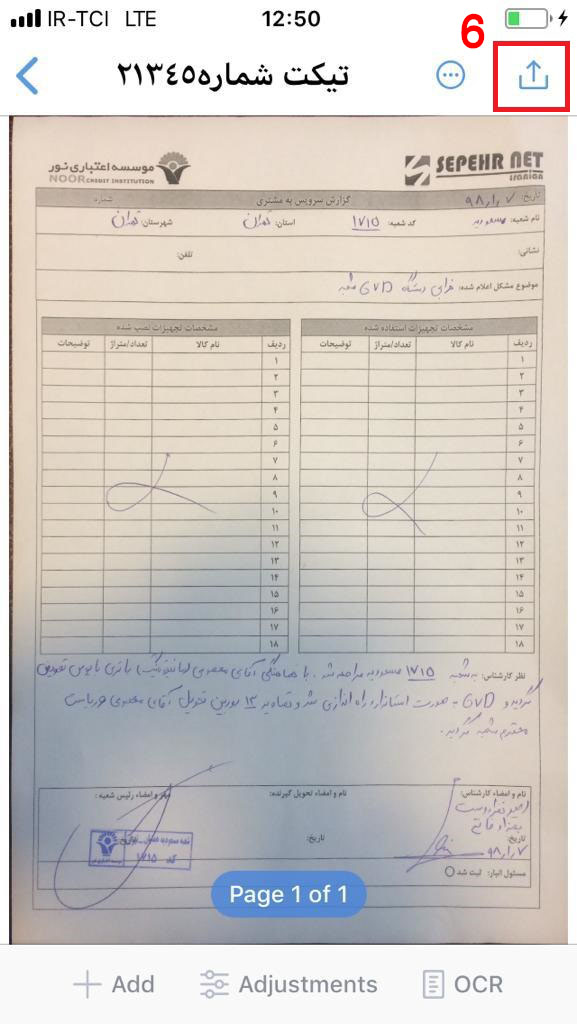 IR-TCI LTE
12:50
6
تیکت شماره٢١٣٤٥
موسسه اعتباری نور
NOOR CREDIT INSTITUTION
SEPEHR NET
IRANIAN
گزارش سرویس به مشتری
تاریخ: ۹۸/۱/۷
شماره
نام شعبه: مسعودیه
کد شعبه: ۱۷۱۵
استان: تهران
شهرستان: تهران
نشانی:
تلفن:
موضوع مشکل اعلام شده: خرابی دستگاه GVD شعبه
مشخصات تجهیزات استفاده شده
ردیف نام کالا تعداد/متراژ توضیحات
۱
۲
۳
۴
۵
۶
۷
۸
۹
۱۰
۱۱
۱۲
۱۳
۱۴
۱۵
۱۶
۱۷
۱۸
مشخصات تجهیزات نصب شده
ردیف نام کالا تعداد/متراژ توضیحات
۱
۲
۳
۴
۵
۶
۷
۸
۹
۱۰
۱۱
۱۲
۱۳
۱۴
۱۵
۱۶
۱۷
۱۸
نظر کارشناس: به شعبه ۱۷۱۵ مسعودیه مراجعه شد. با هماهنگی آقای معصومی باتری بایوس تعویض
گردید و GVD به صورت استاندارد راه اندازی شد و تصاویر ۱۳ دوربین تحویل آقای معصومی ریاست
محترم شعبه گردید.
نام و امضاء کارشناس:
تاریخ:
۹۸/۱/۷
نام و امضاء تحویل گیرنده:
تاریخ:
مهر و امضاء رئیس شعبه:
کد ۱۷۱۵
مسئول انبار: ثبت شد
Page 1 of 1
Add
Adjustments
OCR